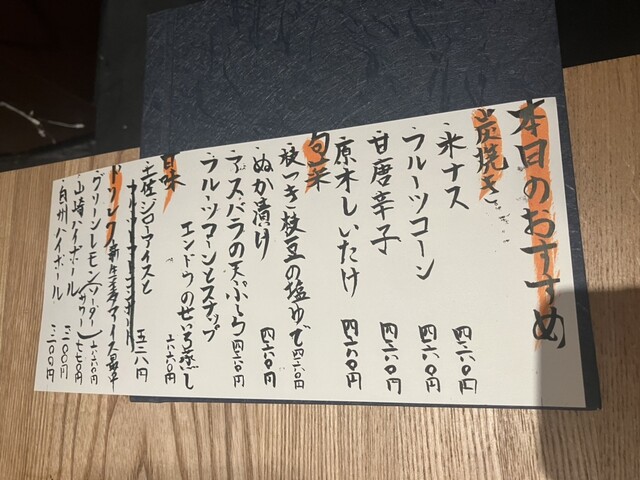 本日のおすすめ
炭焼き
水ナス 四六〇円
フルーツコーン 四六〇円
甘唐辛子 四六〇円
原木しいたけ 四六〇円
旬菜
枝つき枝豆の塩ゆで 四六〇円
ぬか漬け 四六〇円
アスパラの天ぷら 四六〇円
フルーツコーンとスナップ
エンドウのせいろ蒸し 六六〇円
甘味
土佐ジローアイスと
五二八円
ドリンク
グリーンレモン(ソーダー 六六〇円
サワー) 七七〇円
山崎ハイボール
白州ハイボール